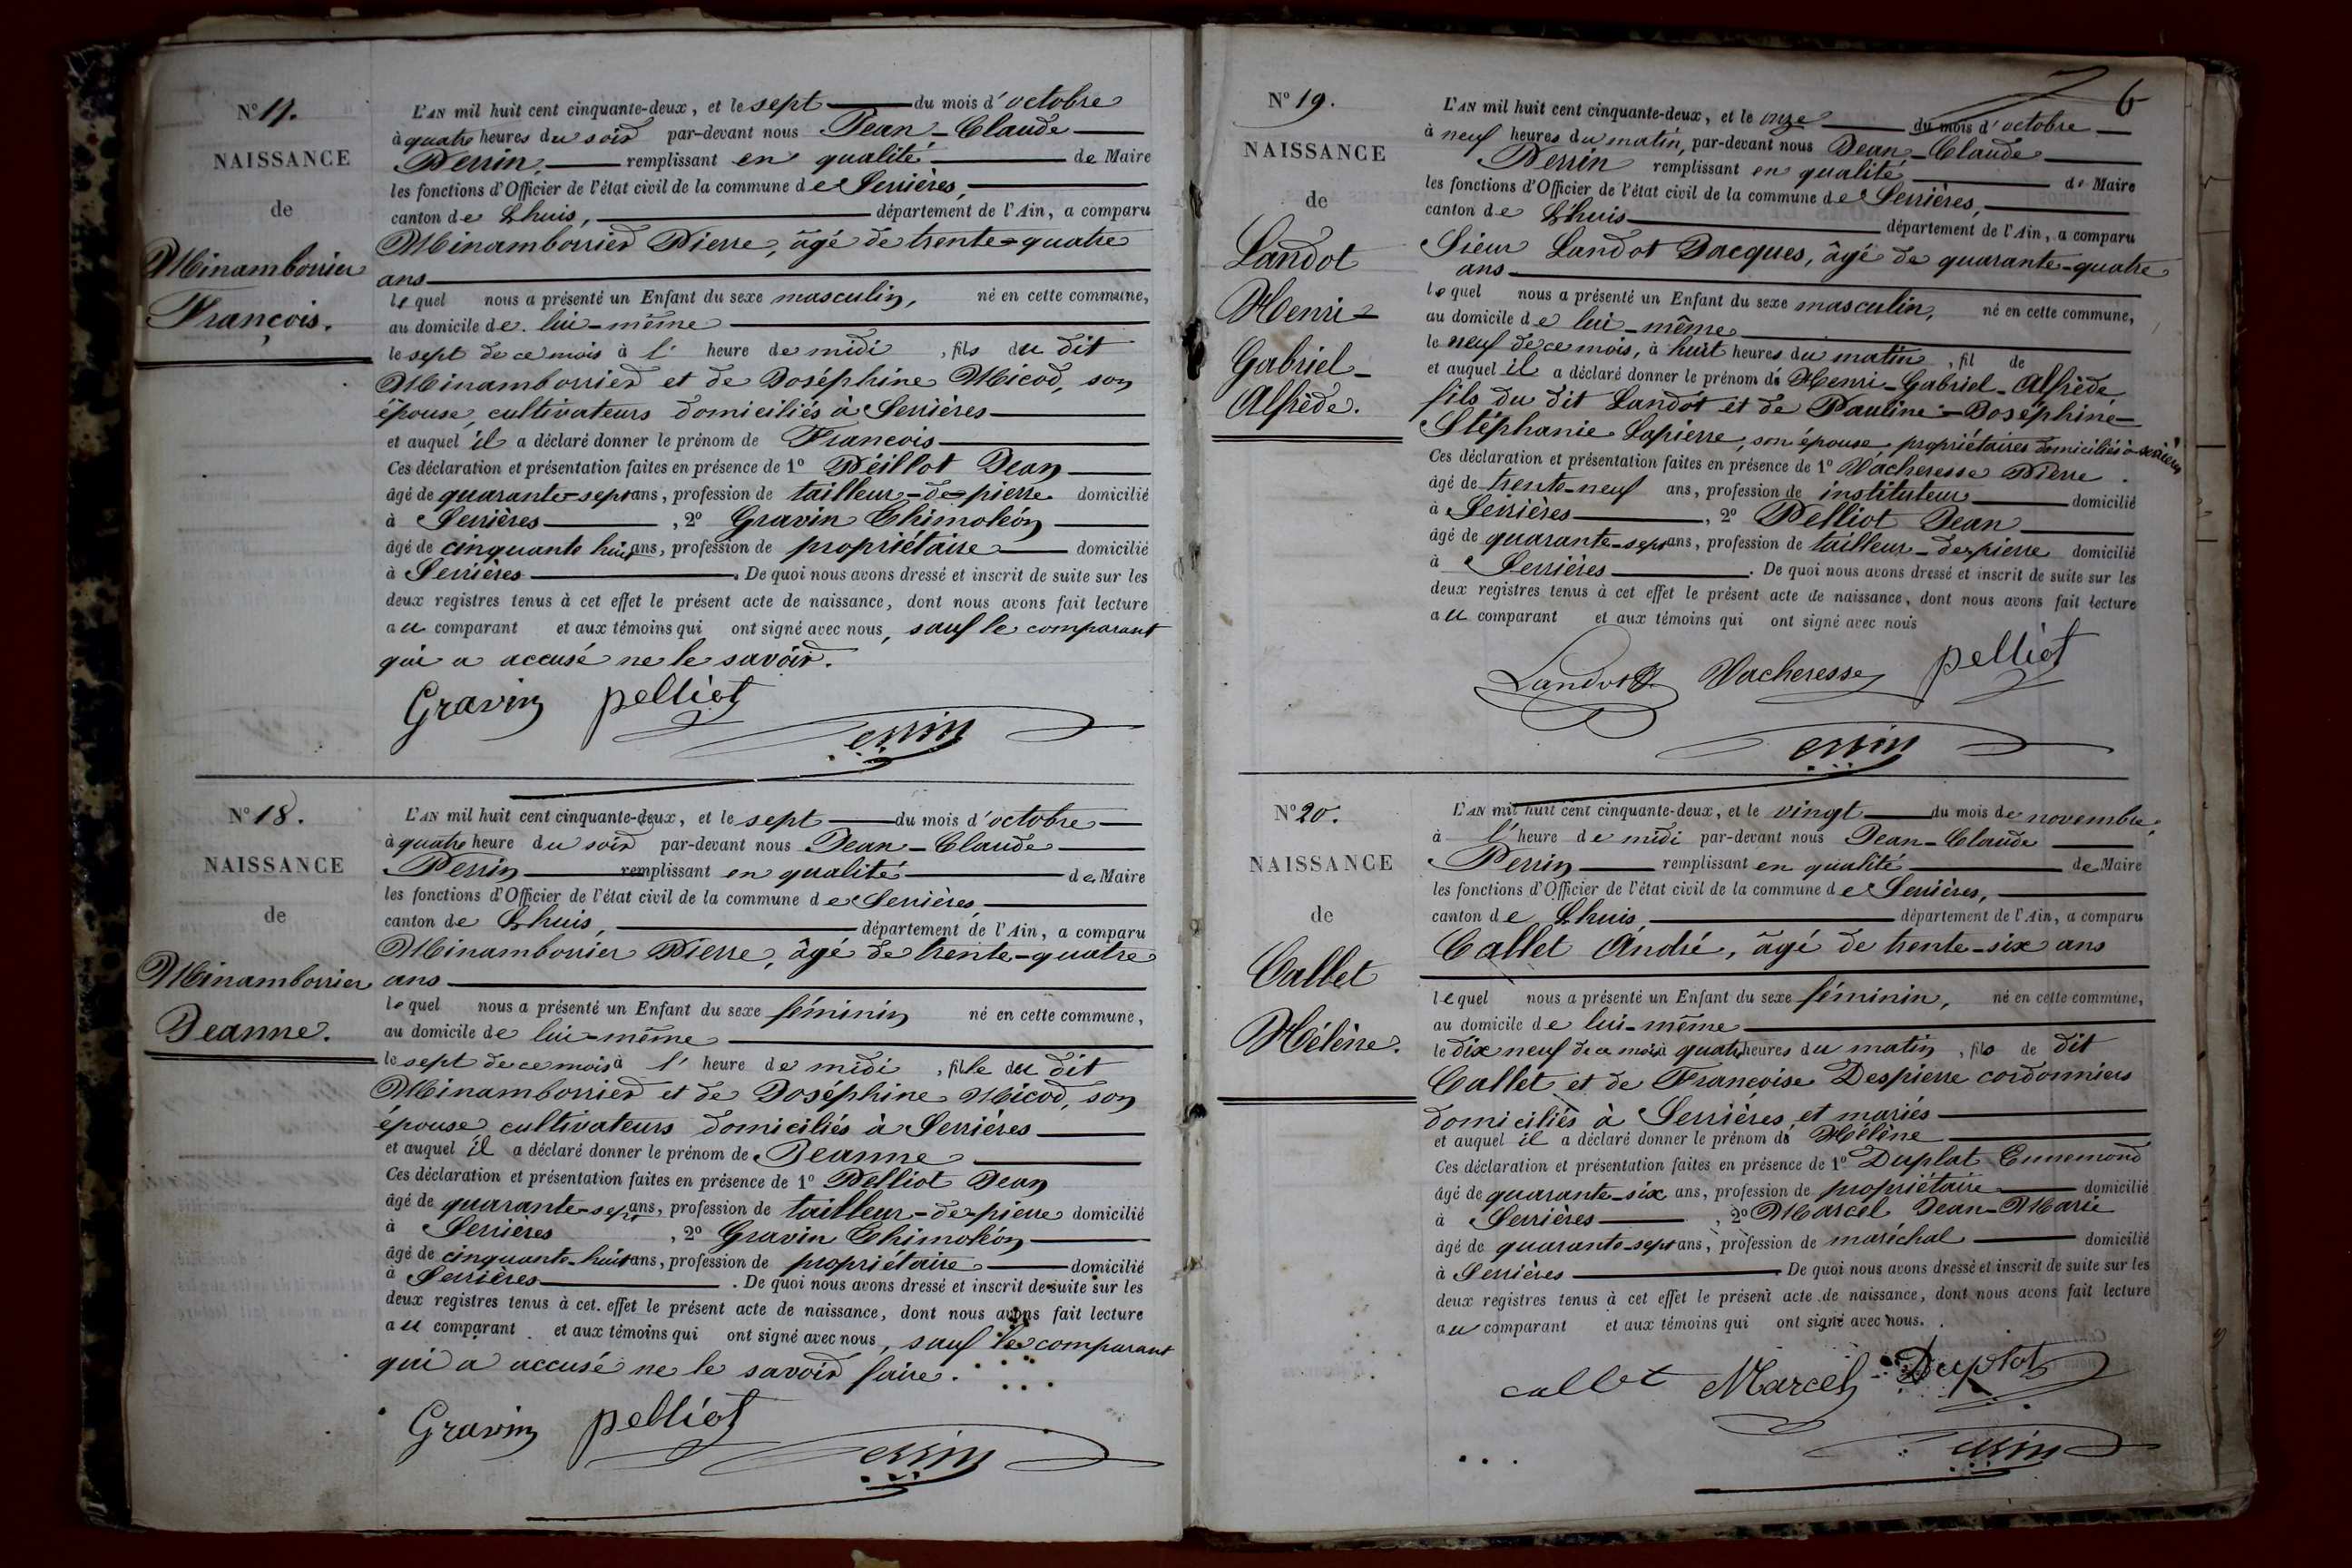 N° 17.
NAISSANCE
de
Minamborrier
François.
L'AN mil huit cent cinquante-deux, et le sept du mois d'octobre
à quatre heures du soir par-devant nous Jean-Claude
Perrin, remplissant en qualité de Maire
les fonctions d'Officier de l'état civil de la commune de Serrières,
canton de Lhuis, département de l'Ain, a comparu
Minamborrier Pierre, âgé de trente-quatre
ans
lequel nous a présenté un Enfant du sexe masculin, né en cette commune,
au domicile de lui-même
le sept de ce mois à l' heure de midi , fils du dit
Minamborrier et de Joséphine Micod, son
épouse, cultivateurs domiciliés à Serrières
et auquel il a déclaré donner le prénom de François
Ces déclaration et présentation faites en présence de 1° Péillot Jean
âgé de quarante-sept ans, profession de tailleur-de-pierre domicilié
à Serrières , 2° Gravin Thimoléon
âgé de cinquante huit ans, profession de propriétaire domicilié
à Serrières . De quoi nous avons dressé et inscrit de suite sur les
deux registres tenus à cet effet le présent acte de naissance, dont nous avons fait lecture
au comparant et aux témoins qui ont signé avec nous, sauf le comparant
qui a accusé ne le savoir.
Gravin pelliot
Perrin
N° 18.
NAISSANCE
de
Minamborrier
Jeanne.
L'AN mil huit cent cinquante-deux, et le sept du mois d'octobre
à quatre heure du soir par-devant nous Jean-Claude
Perrin remplissant en qualité de Maire
les fonctions d'Officier de l'état civil de la commune de Serrières
canton de Lhuis, département de l'Ain, a comparu
Minamborrier Pierre, âgé de trente-quatre
ans
lequel nous a présenté un Enfant du sexe féminin né en cette commune,
au domicile de lui-même
le sept de ce mois à l' heure de midi , fille du dit
Minamborrier et de Joséphine Micod, son
épouse cultivateurs domiciliés à Serrières
et auquel il a déclaré donner le prénom de Jeanne
Ces déclaration et présentation faites en présence de 1° Pelliot Jean
âgé de quarante-sept ans, profession de tailleur-de-pierre domicilié
à Serrières , 2° Gravin Thimoléon
âgé de cinquante-huit ans, profession de propriétaire domicilié
à Serrières . De quoi nous avons dressé et inscrit de suite sur les
deux registres tenus à cet effet le présent acte de naissance, dont nous avons fait lecture
au comparant et aux témoins qui ont signé avec nous, sauf le comparant
qui a accusé ne le savoir faire.
Gravin pelliot
Perrin
6
N° 19.
NAISSANCE
de
Landot
Henri-
Gabriel-
Alfrède.
L'AN mil huit cent cinquante-deux, et le onze du mois d'octobre
à neuf heures du matin, par-devant nous Jean-Claude
Perrin remplissant en qualité de Maire
les fonctions d'Officier de l'état civil de la commune de Serrières,
canton de Lhuis département de l'Ain, a comparu
Sieur Landot Jacques, âgé de quarante-quatre
ans
lequel nous a présenté un Enfant du sexe masculin, né en cette commune,
au domicile de lui-même
le neuf de ce mois, à huit heures du matin , fil de
et auquel il a déclaré donner le prénom de Henri-Gabriel-Alfrède
fils du dit Landot et de Pauline-Joséphine-
Stéphanie Lapierre, son épouse, propriétaires domiciliés à serrières
Ces déclaration et présentation faites en présence de 1° Vacheresse Pierre.
âgé de trente-neuf ans, profession de instituteur domicilié
à Serrières , 2° Pelliot Jean
âgé de quarante-sept ans, profession de tailleur-de-pierre domicilié
à Serrières . De quoi nous avons dressé et inscrit de suite sur les
deux registres tenus à cet effet le présent acte de naissance, dont nous avons fait lecture
au comparant et aux témoins qui ont signé avec nous
Landot Vacheresse pelliot
Perrin
N° 20.
NAISSANCE
de
Callet
Hélène.
L'AN mil huit cent cinquante-deux, et le vingt du mois de novembre,
à l'heure de midi par-devant nous Jean-Claude
Perrin remplissant en qualité de Maire
les fonctions d'Officier de l'état civil de la commune de Serrières,
canton de Lhuis, département de l'Ain, a comparu
Callet André, âgé de trente-six ans
lequel nous a présenté un Enfant du sexe féminin, né en cette commune,
au domicile de lui-même
le dix neuf de ce mois à quatre heures du matin , fils de dit
Callet et de Françoise Despierre cordonniers
domiciliés à Serrières, et mariés
et auquel il a déclaré donner le prénom de Hélène
Ces déclaration et présentation faites en présence de 1° Duplat Ennemond
âgé de quarante-six ans, profession de propriétaire domicilié
à Serrières , 2° Marcel Jean-Marie
âgé de quarante-sept ans, profession de maréchal domicilié
à Serrières . De quoi nous avons dressé et inscrit de suite sur les
deux registres tenus à cet effet le présent acte de naissance, dont nous avons fait lecture
au comparant et aux témoins qui ont signé avec nous.
callet Marcel Duplat
Perrin